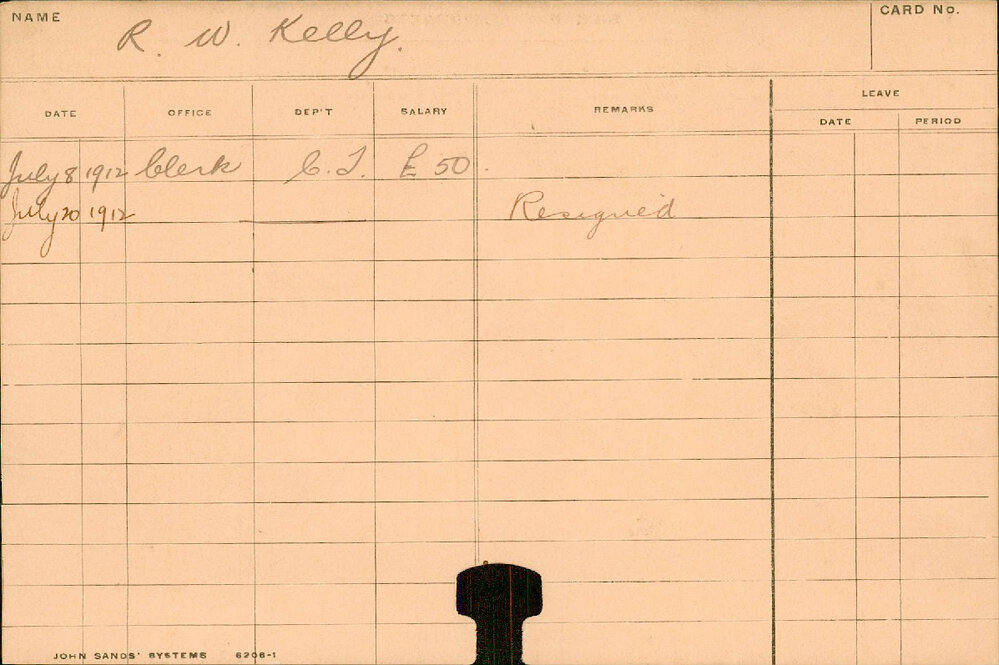 NAME R. W. Kelly. CARD No.
DATE OFFICE DEP'T SALARY REMARKS LEAVE
DATE PERIOD
July 8 1912 Clerk C. T. £ 50.
July 20 1912 Resigned
JOHN SANDS' SYSTEMS 6206-1